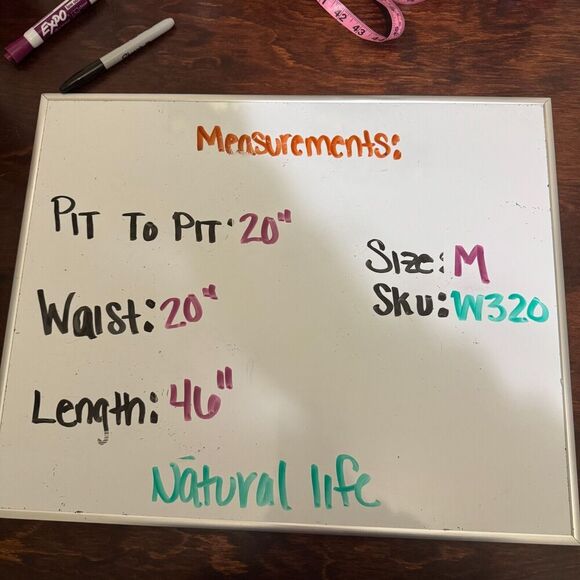 EXPO
42 43
Measurements:
PIT To PIT: 20"
Size: M
Waist: 20"
Sku: W320
Length: 46"
Natural life